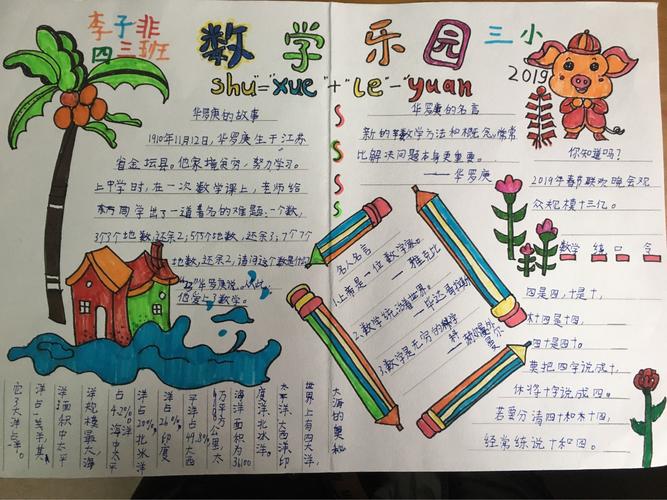 李子非
四三班
数学乐园
三小
shu"="xue"+"le"-"yuan
2019
华罗庚的故事
1910年11月12日,华罗庚生于江苏
省金坛县。他家境贫穷,努力学习。
上中学时,在一次数学课上,老师给
同学出了一道著名的难题:一个数,
3个3个地数,还余2;5个5个地数,还余3;7个7个
地数,还余2,请问这个数是什么
"23"华罗庚说,从此,
他爱上了数学。
华罗庚的名言
新的数学方法和概念,常常
比解决问题本身更重要。
——华罗庚
你知道吗?
2019年春节联欢晚会观
众规模十三亿。
名人名言
1.上帝是一位数学家。
——雅克比
2.数学统治着世界。
——毕达哥拉斯
3.数学是无穷的科学
——赫尔曼外尔
数学绕口令
四是四,十是十,
十四是十四,
四十是四十。
要把四字说成十,
休将十字说成四。
若要分请四十和十四,
经常练说十和四。
大海的奥秘
世界上有四大洋,
太平洋、大西洋、印
度洋、北冰洋。
海洋面积为36100
万平方公里,太
平洋占49.8%大西
洋占26%印度
洋占20%北冰
占4.2%
洋规模最大海
洋面积中太平
洋占一半,其
它3大洋占一半。